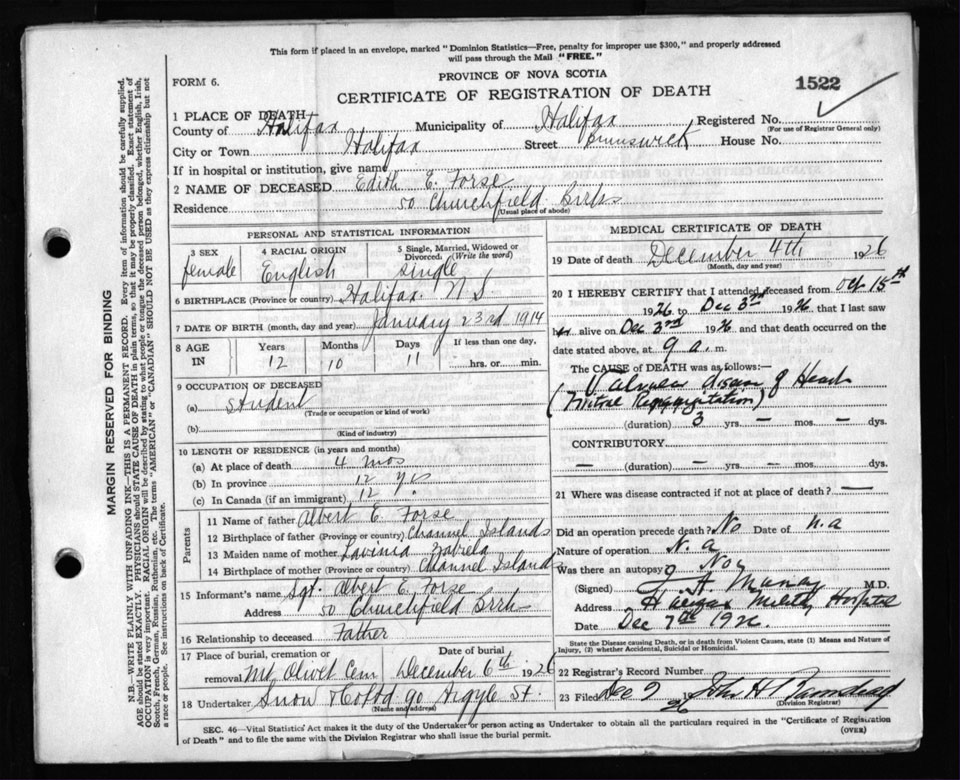 This form if placed in an envelope, marked "Dominion Statistics—Free, penalty for improper use $300," and properly addressed
will pass through the Mail "FREE."
PROVINCE OF NOVA SCOTIA
FORM 6.
1522
CERTIFICATE OF REGISTRATION OF DEATH
1 PLACE OF DEATH
County of Halifax Municipality of Halifax Registered No.
(For use of Registrar General only)
City or Town Halifax Street Brunswick House No.
If in hospital or institution, give name
2 NAME OF DECEASED Edith E. Forse
Residence 50 Churchfield Brrks
(Usual place of abode)
PERSONAL AND STATISTICAL INFORMATION
3 SEX female
4 RACIAL ORIGIN English
5 Single, Married, Widowed or Divorced. (Write the word) single
6 BIRTHPLACE (Province or country) Halifax. N S
7 DATE OF BIRTH (month, day and year) January 23rd 1914
8 AGE IN Years 12 Months 10 Days 11 If less than one day, hrs. or min.
9 OCCUPATION OF DECEASED
(a) student
(Trade or occupation or kind of work)
(b)
(Kind of industry)
10 LENGTH OF RESIDENCE (in years and months)
(a) At place of death 4 mos
(b) In province 12 yrs
(c) In Canada (if an immigrant) 12
Parents
11 Name of father Albert E. Forse
12 Birthplace of father (Province or country) Channel Islands
13 Maiden name of mother Lavinia
14 Birthplace of mother (Province or country) Channel Islands
15 Informant's name Sgt. Albert E. Forse
Address 50 Churchfield Brrks
16 Relationship to deceased Father
17 Place of burial, cremation or removal Mt Olivet Cem Date of burial December 6th 1926
18 Undertaker Snow 90 Argyle St.
(Name and address)
MEDICAL CERTIFICATE OF DEATH
19 Date of death December 4th 1926
(Month, day and year)
20 I HEREBY CERTIFY that I attended deceased from Oct 15th
1926 to Dec 3rd 1926, that I last saw
her alive on Dec 3rd 1926 and that death occurred on
date stated above, at 9 a. m.
The CAUSE of DEATH was as follows:—
Valvular disease of Heart
(Mitral Regurgitation)
(duration) 3 yrs. — mos. — dys.
CONTRIBUTORY
— (duration) — yrs. — mos. — dys.
21 Where was disease contracted if not at place of death? —
Did an operation precede death? No Date of n.a
Nature of operation N. a
Was there an autopsy? No
(Signed) M.D.
Address Halifax Military Hospital
Date Dec 7th 1926.
State the Disease causing Death, or in death from Violent Causes, state (1) Means and Nature of
Injury, (2) whether Accidental, Suicidal or Homicidal.
22 Registrar's Record Number
23 Filed Dec John H
(Division Registrar)
SEC. 46—Vital Statistics' Act makes it the duty of the Undertaker or person acting as Undertaker to obtain all the particulars required in the "Certificate of Registration
of Death" and to file the same with the Division Registrar who shall issue the burial permit.
(OVER)
MARGIN RESERVED FOR BINDING
N.B.—WRITE PLAINLY WITH UNFADING INK—THIS IS A PERMANENT RECORD. Every item of information should be carefully supplied.
AGE should be stated EXACTLY. PHYSICIANS should STATE CAUSE OF DEATH in plain terms, so that it may be properly classified. Exact statement of
OCCUPATION is very important. RACIAL ORIGIN will be described by stating to what people or tongue the deceased person belonged, whether English, Irish,
Scotch, French, German, Russian, Ruthenian, etc. The terms "AMERICAN" or "CANADIAN" SHOULD NOT BE USED as they express citizenship but not
a race or people. See instructions on back of Certificate.